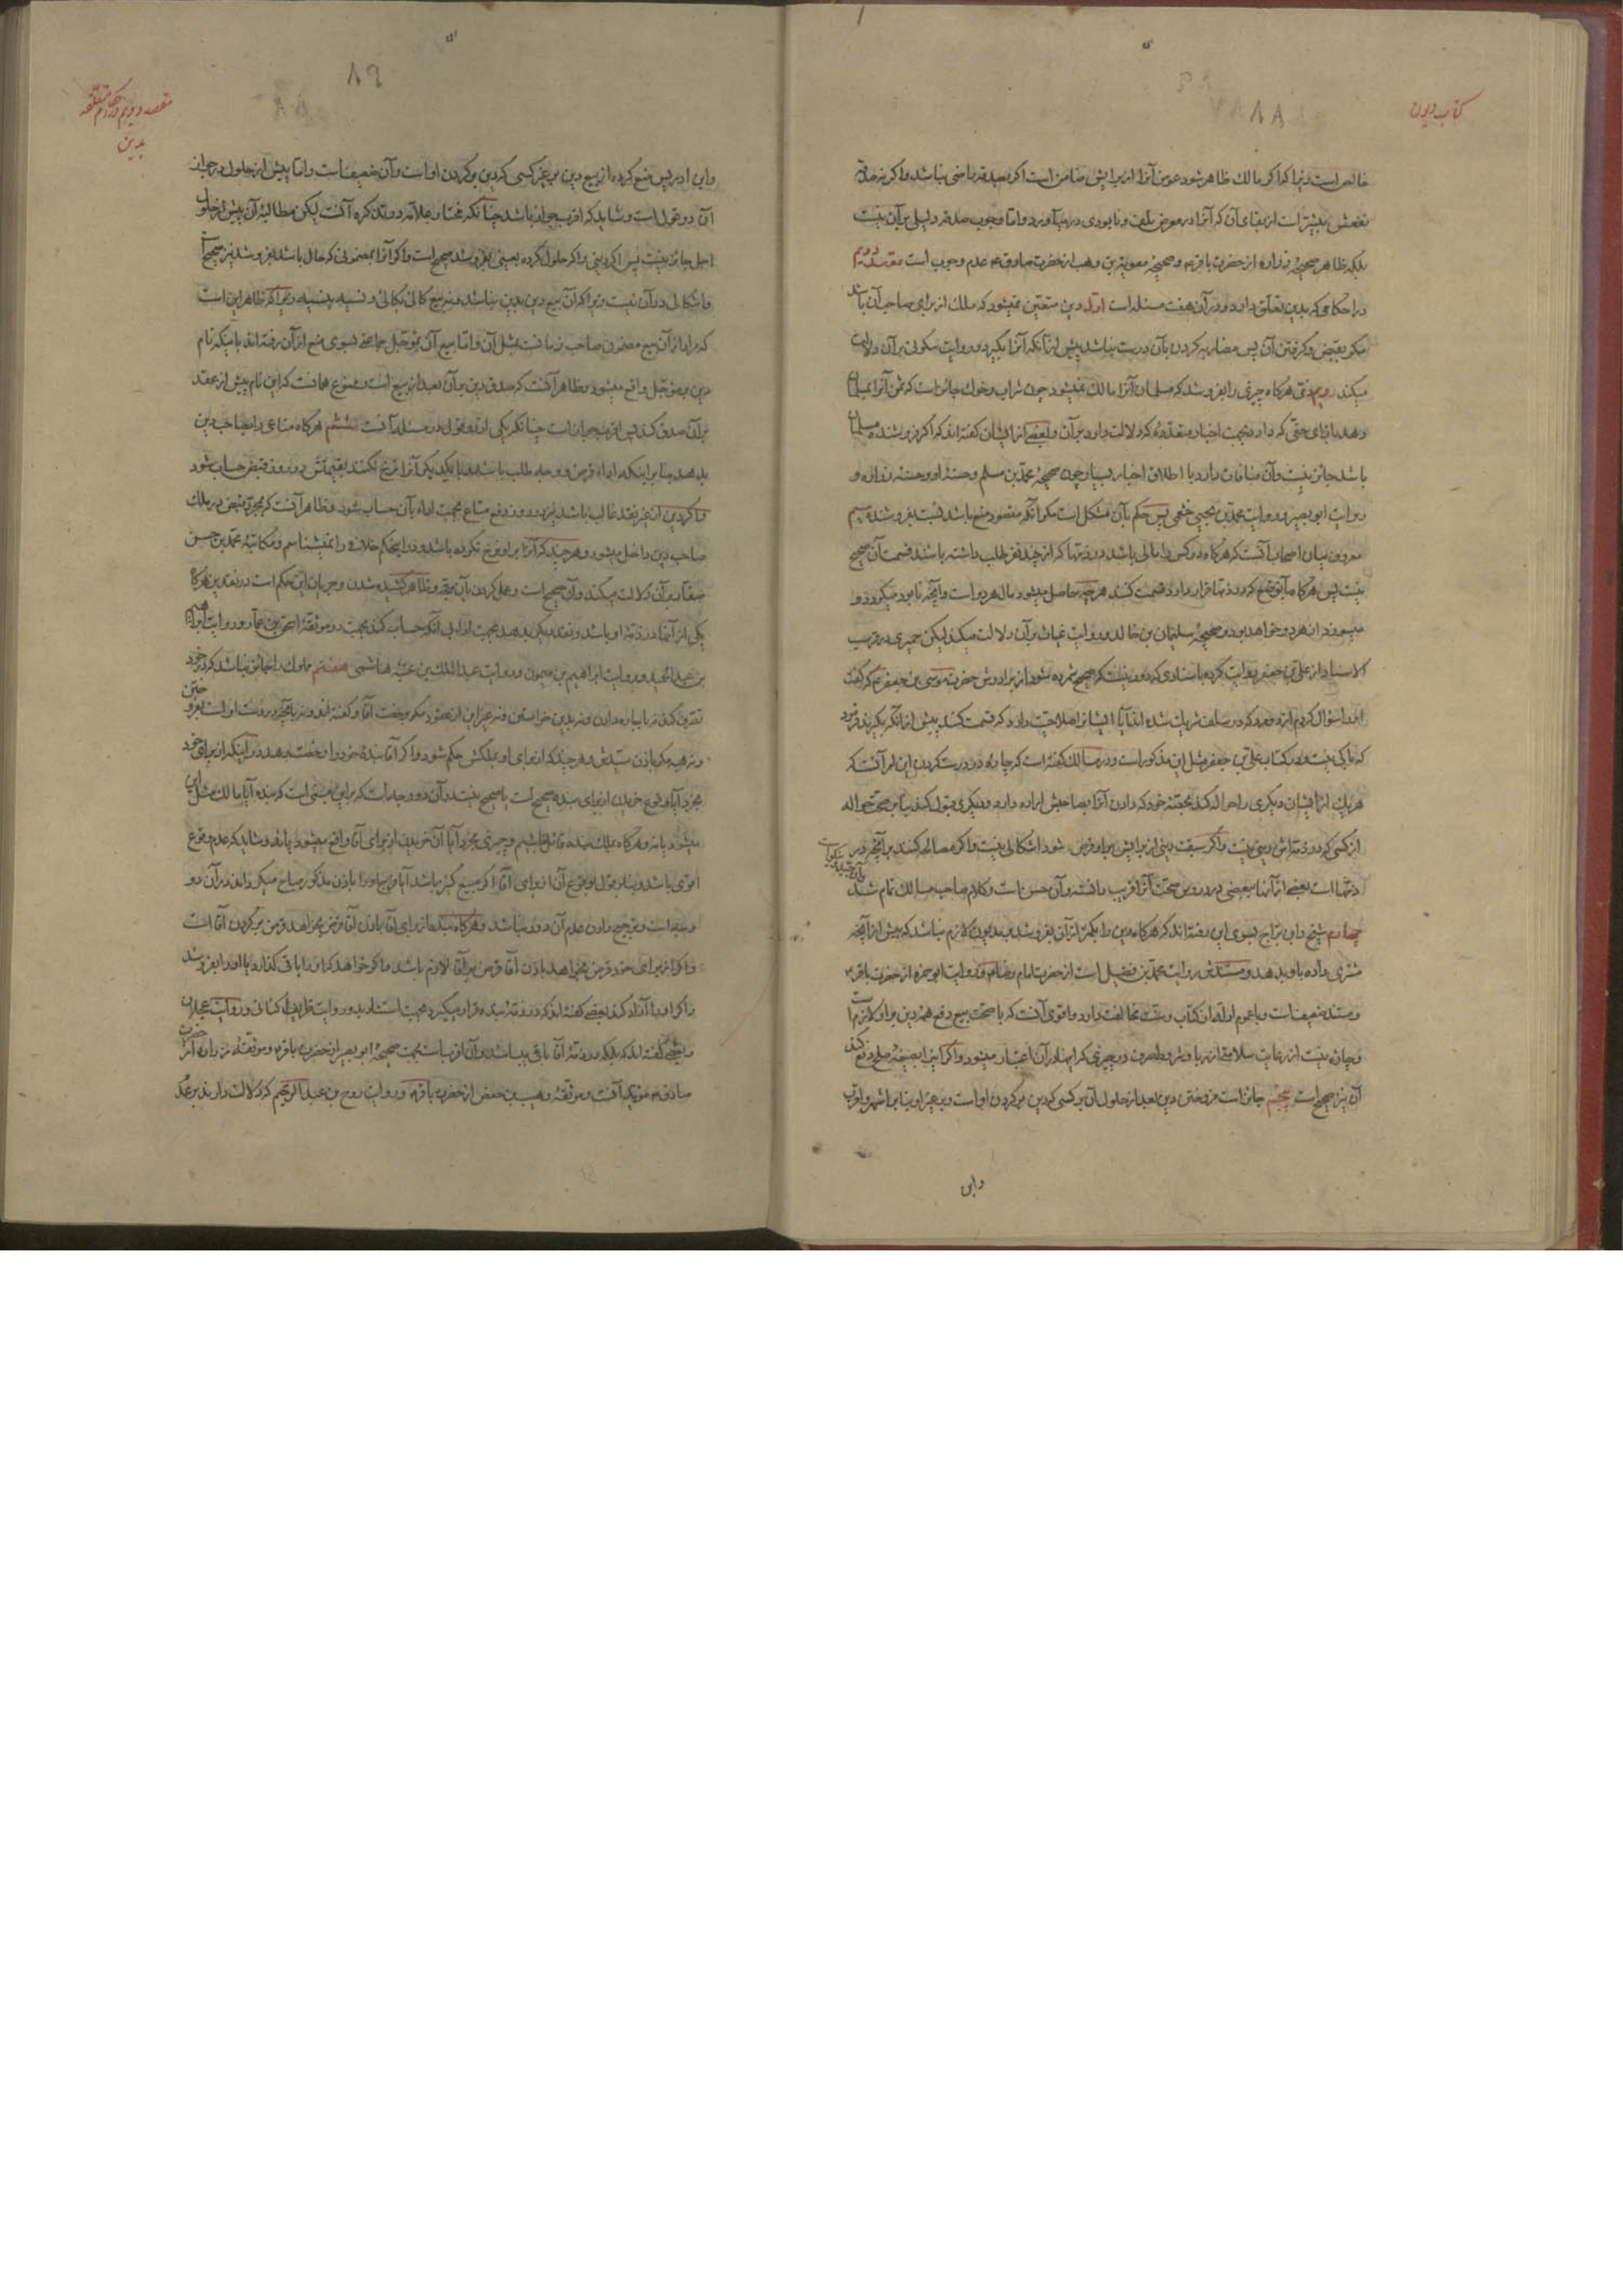 کتاب دیون
۸۸
خالص است زیرا که اگر مالک ظاهر شود عوض آنرا از برایش ضامن است اگر بصدقه راضی نباشد و اگر نه صدقه
نفعش بیشتر است از بقای آن که آنرا در معرض تلف و نابودی در میآورد و اما وجوب صدقه دلیلی بر آن نیست
بلکه ظاهر صحیحهٔ زراره از حضرت باقر ع و صحیحهٔ معویة بن وهب از حضرت صادق ع عدم وجوب است مقصد دویم
در احکامی که بدین تعلق دارد و در آن هفت مسئله است اول دین متعین نمیشود که ملک از برای صاحب آن باشد
مگر بقبض و گرفتن آن پس مضاربه کردن بآن درست نباشد پیش از آنکه آنرا بگیرد و روایت سکونی بر آن دلالت
میکند دویم ذمی هرگاه چیزی را بفروشد که مسلمان آنرا مالک نمیشود چون شراب و خوک جائز است که ثمن آنرا بمسلمان
دهد بازای حقی که دارد بجهت اخبار متعدده که دلالت دارد بر آن و بعضی از ایشان گفته اند که اگر فروشنده مسلمان
باشد جائز نیست و آن منافات دارد با اطلاق اخبار بسیار چون صحیحهٔ محمد بن مسلم و حسنهٔ او و حسنهٔ زراره و
روایت ابو بصیر و روایت محمد بن یحیی خثعمی پس حکم بآن مشکل است مگر آنکه مقصود منع باشد نسبت بفروشنده سیم
معروف میان اصحاب آنست که هرگاه دو کس را مالی باشد در ذمتها که از چند نفر طلب داشته باشند قسمت آن صحیح
نیست پس هرگاه بآنوضع که در ذمتها قرار دارد قسمت کنند هر چه حاصل میشود مال هر دو است و آنچه نابود میگردد و
میسوزد از هر دو خواهد بود و صحیحهٔ سلیمان بن خالد و روایت غیاث بر آن دلالت میکند لیکن حمیری در قرب
الاسناد از علی بن جعفر روایت کرده باسنادی که دور نیست که صحیح شمرده شود از برادرش حضرت موسی بن جعفر ع که گفت
از او سؤال کردم از دو مرد که در سلف شریک شده اند آیا ایشانرا صلاحیت دارد که قسمت کنند پیش از آنکه بگیرند فرمود
که باکی نیست و در کتاب علی بن جعفر مثل این مذکور است و در مسالک گفته است که چاره در درست کردن این امر آنست که
هر یک از ایشان دیگری را حواله کند بحصّهٔ خود که دادن آنرا بصاحبش اراده دارد و دیگری قبول کند بنا بر صحت حواله
از کسی که در ذمه اش دینی نیست و اگر سبقت دینی از برایش بر او فرض شود اشکالی نیست و اگر مصالحه کنند بر آنچه در
ذمتها است بعضی از آن ببعضی در دروس صحت آنرا قریب دانسته و آن حسن است و کلام صاحب مسالک تمام شد
چهارم شیخ و ابن براج بسوی این رفته اند که هرگاه دین را بکمتر از آن بفروشد بر مدیون لازم نباشد که بیش از آنچه
مشتری داده باو بدهد و مستندش روایت محمد بن فضیل است از حضرت امام رضا ع و روایت ابو حمزه از حضرت باقر ع
و سند ضعیف است و با عموم ادله از کتاب و سنت مخالفت دارد و اقوی آنست که با صحت بیع دفع همهٔ دین بر او لازم است
و چاره نیست از رعایت سلامتی از ربا و شروط صرف در چیزی که اینها در آن اعتبار میشود و اگر این بصیغهٔ صلح وقوع کند
آن نیز صحیح است پنجم جائز است فروختن دین بعد از حلول آن بر کسی که دین بر گردن او است و بر غیر او بنا بر اشهر و اقرب
و ابن
مقصد دویم در احکام متعلقه
بدین
۸۹
و ابن ادریس منع کرده از بیع دین بر غیر کسی که دین بر گردن او است و آن ضعیف است و اما پیش از حلول در جواز
آن دو قول است و شاید که اقرب جواز باشد چنانکه مختار علامه در تذکره آنست لیکن مطالبهٔ آن پیش از حلول
اجل جائز نیست پس اگر دینی را که حلول کرده بعینی بفروشد صحیح است و اگر آنرا بمضمونی که حال باشد بفروشد نیز صحیح است
و اشکالی در آن نیست زیرا که آن بیع دین بدین نباشد و نیز بیع کالی بکالی و نسیه بنسیه نیست زیرا که ظاهر این است
که مراد از آن بیع مضمون صاحب زمانست بمثل آن و اما بیع آن بمؤجل جماعتی بسوی منع از آن رفته اند باینکه نام
دین بر مؤجل واقع میشود و ظاهر آنست که صدق دین بر آن بعد از بیع است و ممنوع همانست که این نام پیش از عقد
بر آن صدق کند پس اقرب جواز است چنانکه یکی از دو قول در مسئله آنست ششم هرگاه متاعی را بصاحب دین
بدهد بنا بر اینکه ادای قرض و وجه طلب باشد و با یکدیگر آنرا نرخ نکنند بقیمتش در روز قبض حساب شود
و اگر دین از غیر نقد غالب باشد نیز در روز دفع متاع بجهت اداء بآن حساب شود و ظاهر آنست که بمجرد قبض در ملک
صاحب دین داخل میشود و هر چند که آنرا بر او نرخ نکرده باشد و در اینحکم خلافی را نمیشناسم و مکاتبهٔ محمد بن حسن
صفار بر آن دلالت میکند و آن صحیح است و عمل کردن بآن متجه و ظاهر کشیده شدن و جریان این حکم است در نقدین هرگاه
یکی از آنها در ذمهٔ او باشد و نقد دیگر بدهد بجهت ادا بی آنکه حساب کند بجهت موثقهٔ اسحق بن عمار و روایت ابراهیم
بن عبد الحمید و روایت ابراهیم بن میمون و روایت عبد الملک بن عتبهٔ هاشمی هفتم مملوک را جائز نباشد که در خود
تصرف کند نه باجاره دادن و نه بدین خواستن و نه غیر این از عقود مگر برخصت آقا و گفته اند و نه بآنچه در دست او است بفروختن
و نه هبه مگر باذن سیدش و هر چند که از برای او بملکش حکم شود و اگر آقا بندهٔ خود را رخصت بدهد در اینکه از برای خود
بخرد آیا وقوع خریدن از برای بنده صحیح است یا صحیح نیست در آن دو وجه است که بر این مبنی است که بنده آیا مالک مثل این
میشود یا نه و هرگاه بملک بنده قائل نباشیم و چیزی بخرد آیا آن خریدن از برای آقا واقع میشود یا نه و شاید که عدم وقوع
اقوی باشد و بنا بر قول بوقوع آن از برای آقا اگر مبیع کنیز باشد آیا وطی او را باذن مذکور مباح میگرداند در آن دو
وجه است و ترجیح دادن عدم آن دور نباشد و هرگاه بنده از برای آقا باذن آقا قرض بخواهد قرض بر گردن آقا است
و اگر از برای خود قرض بخواهد باذن آقا قرض بر آقا لازم باشد اگر خواهد که او را باقی گذارد یا او را بفروشد
و اگر او را آزاد کند بعضی گفته اند که در ذمهٔ بنده قرار میگیرد بجهت استناد بدو روایت ظریف اکفانی و روایت عجلان
و بعضی گفته اند که بلکه در ذمهٔ آقا باقی میباشد و آن اقرب است بجهت صحیحهٔ ابو بصیر از حضرت باقر ع و موثقهٔ زراره از حضرت
صادق ع مؤید آنست و موثقهٔ وهیب بن حفص از حضرت باقر ع و روایت روح بن عبد الرحیم که دلالت دارند بر عدم